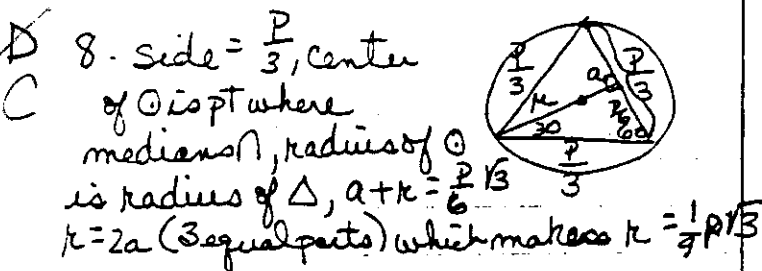 D 8. side = P/3, center
C of ⊙ is pt where
medians ∩, radius of ⊙
is radius of △, a+r = P/6 √3
r = 2a (3 equal parts) which makes r = 1/9 P√3
P/3 a P/3
r P/6
30 60
P/3